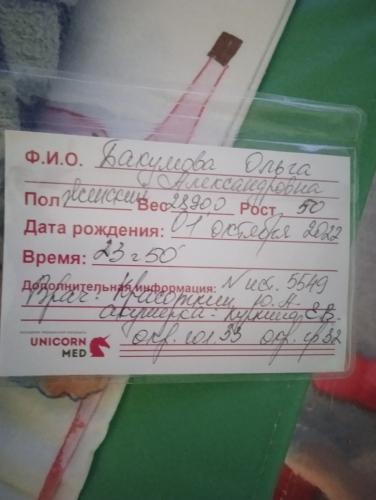 Ф.И.О. Бакумова Ольга
Александровна
Пол женский Вес 2890,0 Рост 50
Дата рождения: 01 октября 2022
Время: 23 ч 50
Дополнительная информация: N ист. 5549
Врач: Красоткин Ю.А.
акушерка: Е.В.
UNICORN
MED
окр. гол 33 окр. гр 32